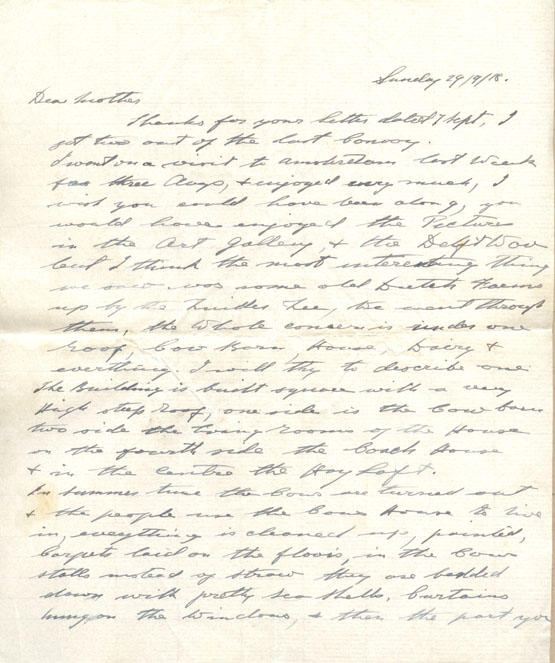 Sunday 29/9/18.
Dear Mother
Thanks for your letter dated 7 Sept, I
got two out of the last Convoy.
I went on a visit to Amsterdam last Week
for three days, & enjoyed very much, I
wish you could have been along, you
would have enjoyed the Pictures
in the Art Gallery, & the
but I think the most interesting thing
we saw was some old Dutch Farms
up by the Zuider Zee, We went through
them, the Whole concern is under one
Roof, Cow Barn, House, Dairy &
everything I will try to describe one
The Building is built square with a very
High steep Roof, one side is the Cow barn
two side the living rooms of the House
on the fourth side the Coach House
& in the centre the Hay Loft.
In Summer time the Cows are turned out
& the people use the Cow House to live
in, everything is cleaned up, painted,
Carpets laid on the floors, in the Cow
stalls instead of straw they are bedded
down with pretty sea shells, Curtains
hung on the Windows, & then the part you